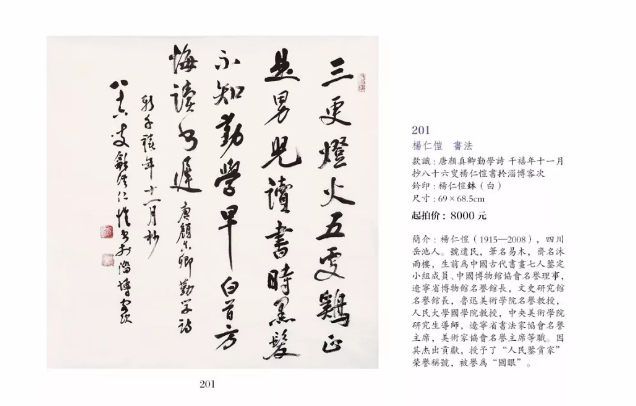 三更燈火五更鷄正
是男兒讀書時黑髮
不知勤學早白首方
悔讀書遲 唐顏真卿勤學詩
新千禧年十一月杪
八十六叟仁愷書於淄博客次
201
楊仁愷 書法
款識：唐顏真卿勤學詩 千禧年十一月
抄八十六叟楊仁愷書於淄博客次
鈐印：楊仁愷鉢（白）
尺寸：69×68.5cm
起拍价：8000 元
簡介：楊仁愷（1915—2008），四川
岳池人。號遺民，筆名易木，齋名沐
雨樓，生前爲中國古代書畫七人鑒定
小組成員、中國博物館協會名譽理事，
遼寧省博物館名譽館長，文史研究館
名譽館長，魯迅美術學院名譽教授，
人民大學國學院教授，中央美術學院
研究生導師，遼寧省書法家協會名譽
主席，美術家協會名譽主席等職。因
其杰出貢獻，授予了“人民鑒賞家”
榮譽稱號，被譽爲“國眼”。
201